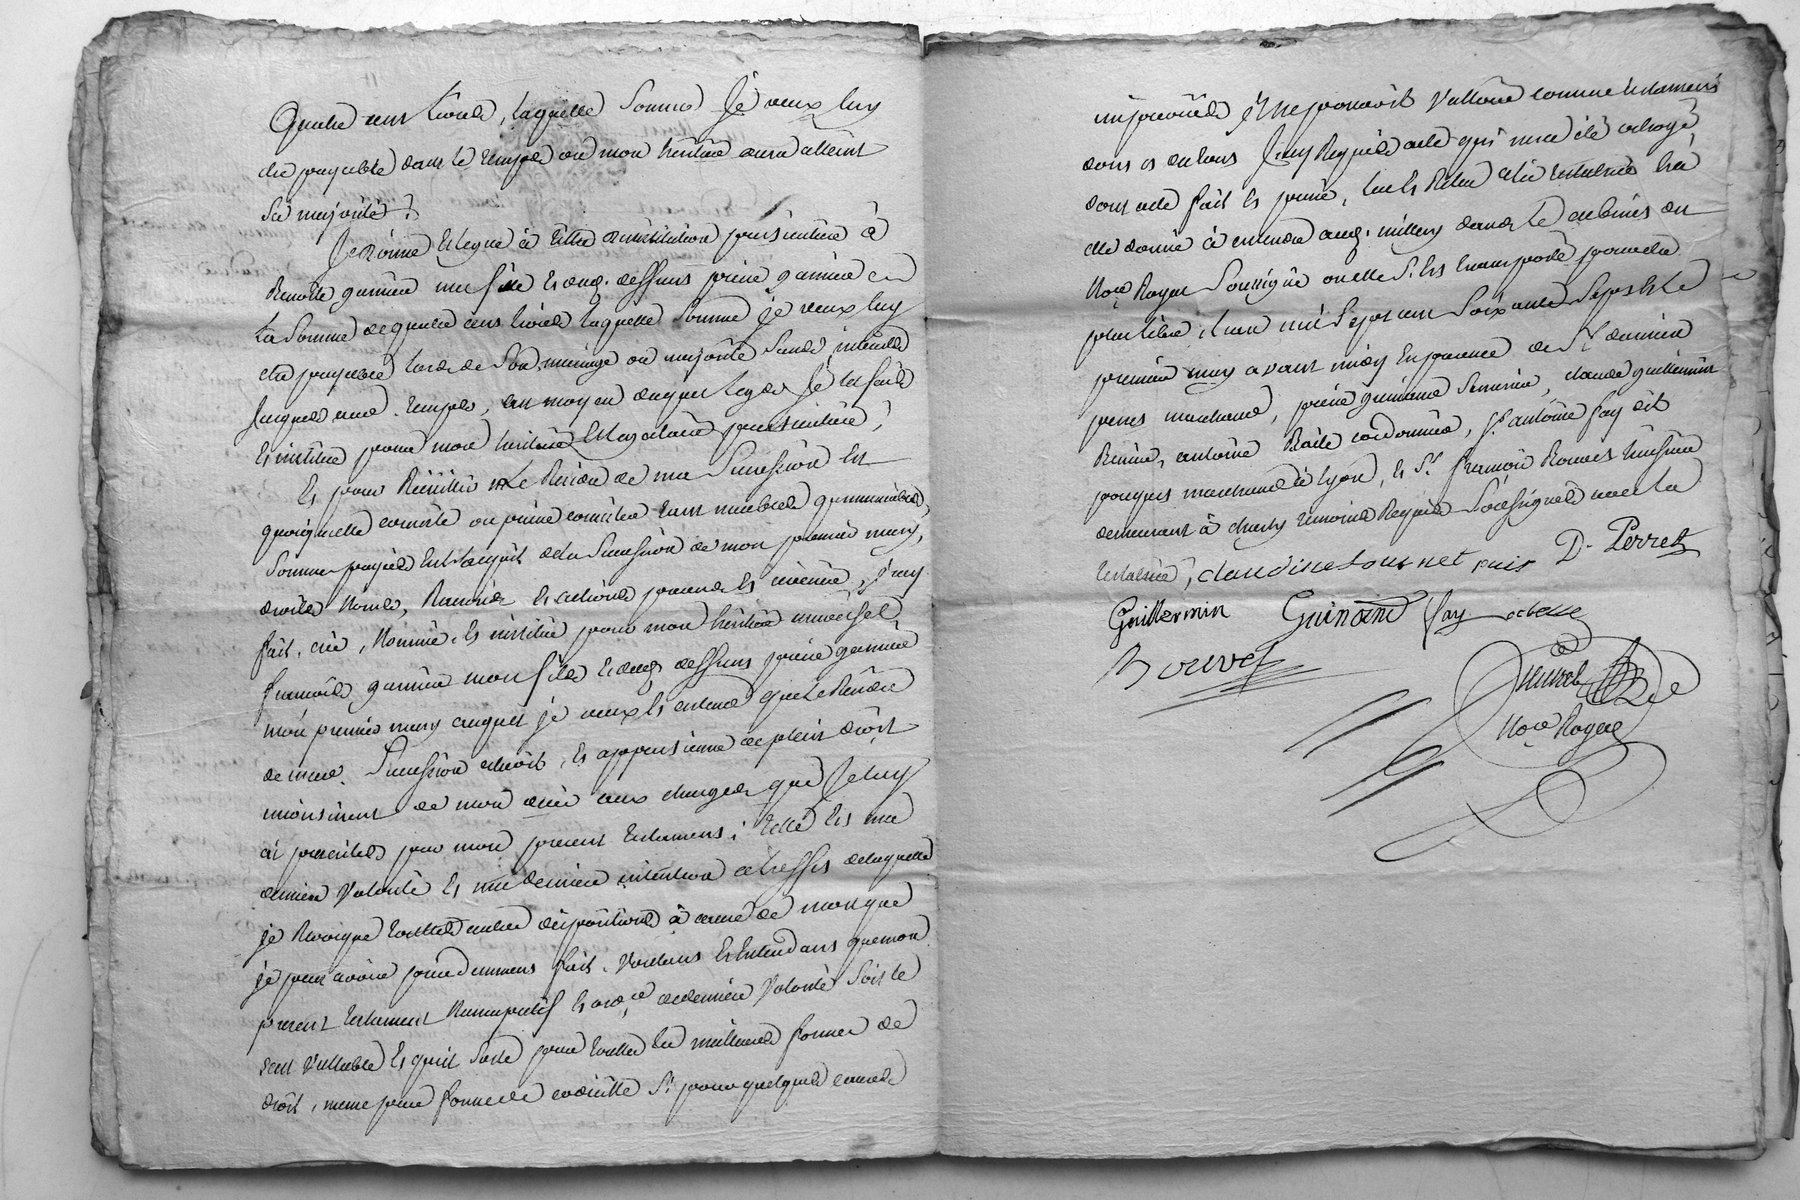 Quatre cent livres, laquelle Somme Je veux luy
etre payable dans le temps ou mon heritier aura atteint
Sa majorité.
Je donne et legue à titre d'institution particuliere à
Benoite garnier ma fille et dud. deffunt pierre garnier
la Somme de quatre cens livres laquelle Somme je veux luy
etre payable lors de Son mariage ou majorité Sans interets
Jusques aud. temps, au moyen duquel legs Je la fais
et institue pour mon heritiere et legataire particuliere,
Et pour Recuillir Le Residu de ma Succession et
quoiquelle consiste ou puisse consister tant meubles qu'immeubles,
Sommes payées en l'acquit de la Succession de mon premier mary,
droits Noms, Raisons et actions pour et j'ay
fait, créé, Nommé et institué pour mon heritier universel
françois garnier mon fils et dud. deffunt pierre garnier
mon premier mary auquel je veux et entend que le Residu
de mad. Succession echoit, et appartienne de plein droit
moi de mon aux charges que Je luy
ai prescrites par mon present testament; telle est ma
derniere Volonté et ma derniere intention à l'effet de laquelle
je Revoque toutes autres dispositions à cause de mort que
je peux avoir precedament fait, Voulant et entendant que mon
present testament Nuncupatif et ord.ce de derniere Volonté Soit le
seul Vallable et qu'il Sorte pour toutes les meilleures formes de
droit, meme pour forme de codicille Si pour quelques causes
impreveües Il ne pouvoit Valloir comme testament
dont J'ay Requis acte qui m'a été octroyé,
dont acte fait et passé, lu et Relu à la testatrice
elle donné à entendre aud. millery dans le cabinet du
No.re Royal Soussigné ou elle S'est transporté pour etre
plus libre, l'an mil Sept cent Soixante Sept et le
premier may avant midy En presence de S.r damien
perret marchand, pierre guinand Serrurier, claude guillermin
antoine cordonnier, S.r antoine fay dit
marchand à Lyon, et S.r françois Bouvet
demeurant à charly temoins Requis Soussignés avec la
testatrice, claudine tournet D. Perret
Guillermin Guinand fay
Bouvet
No.re Royal